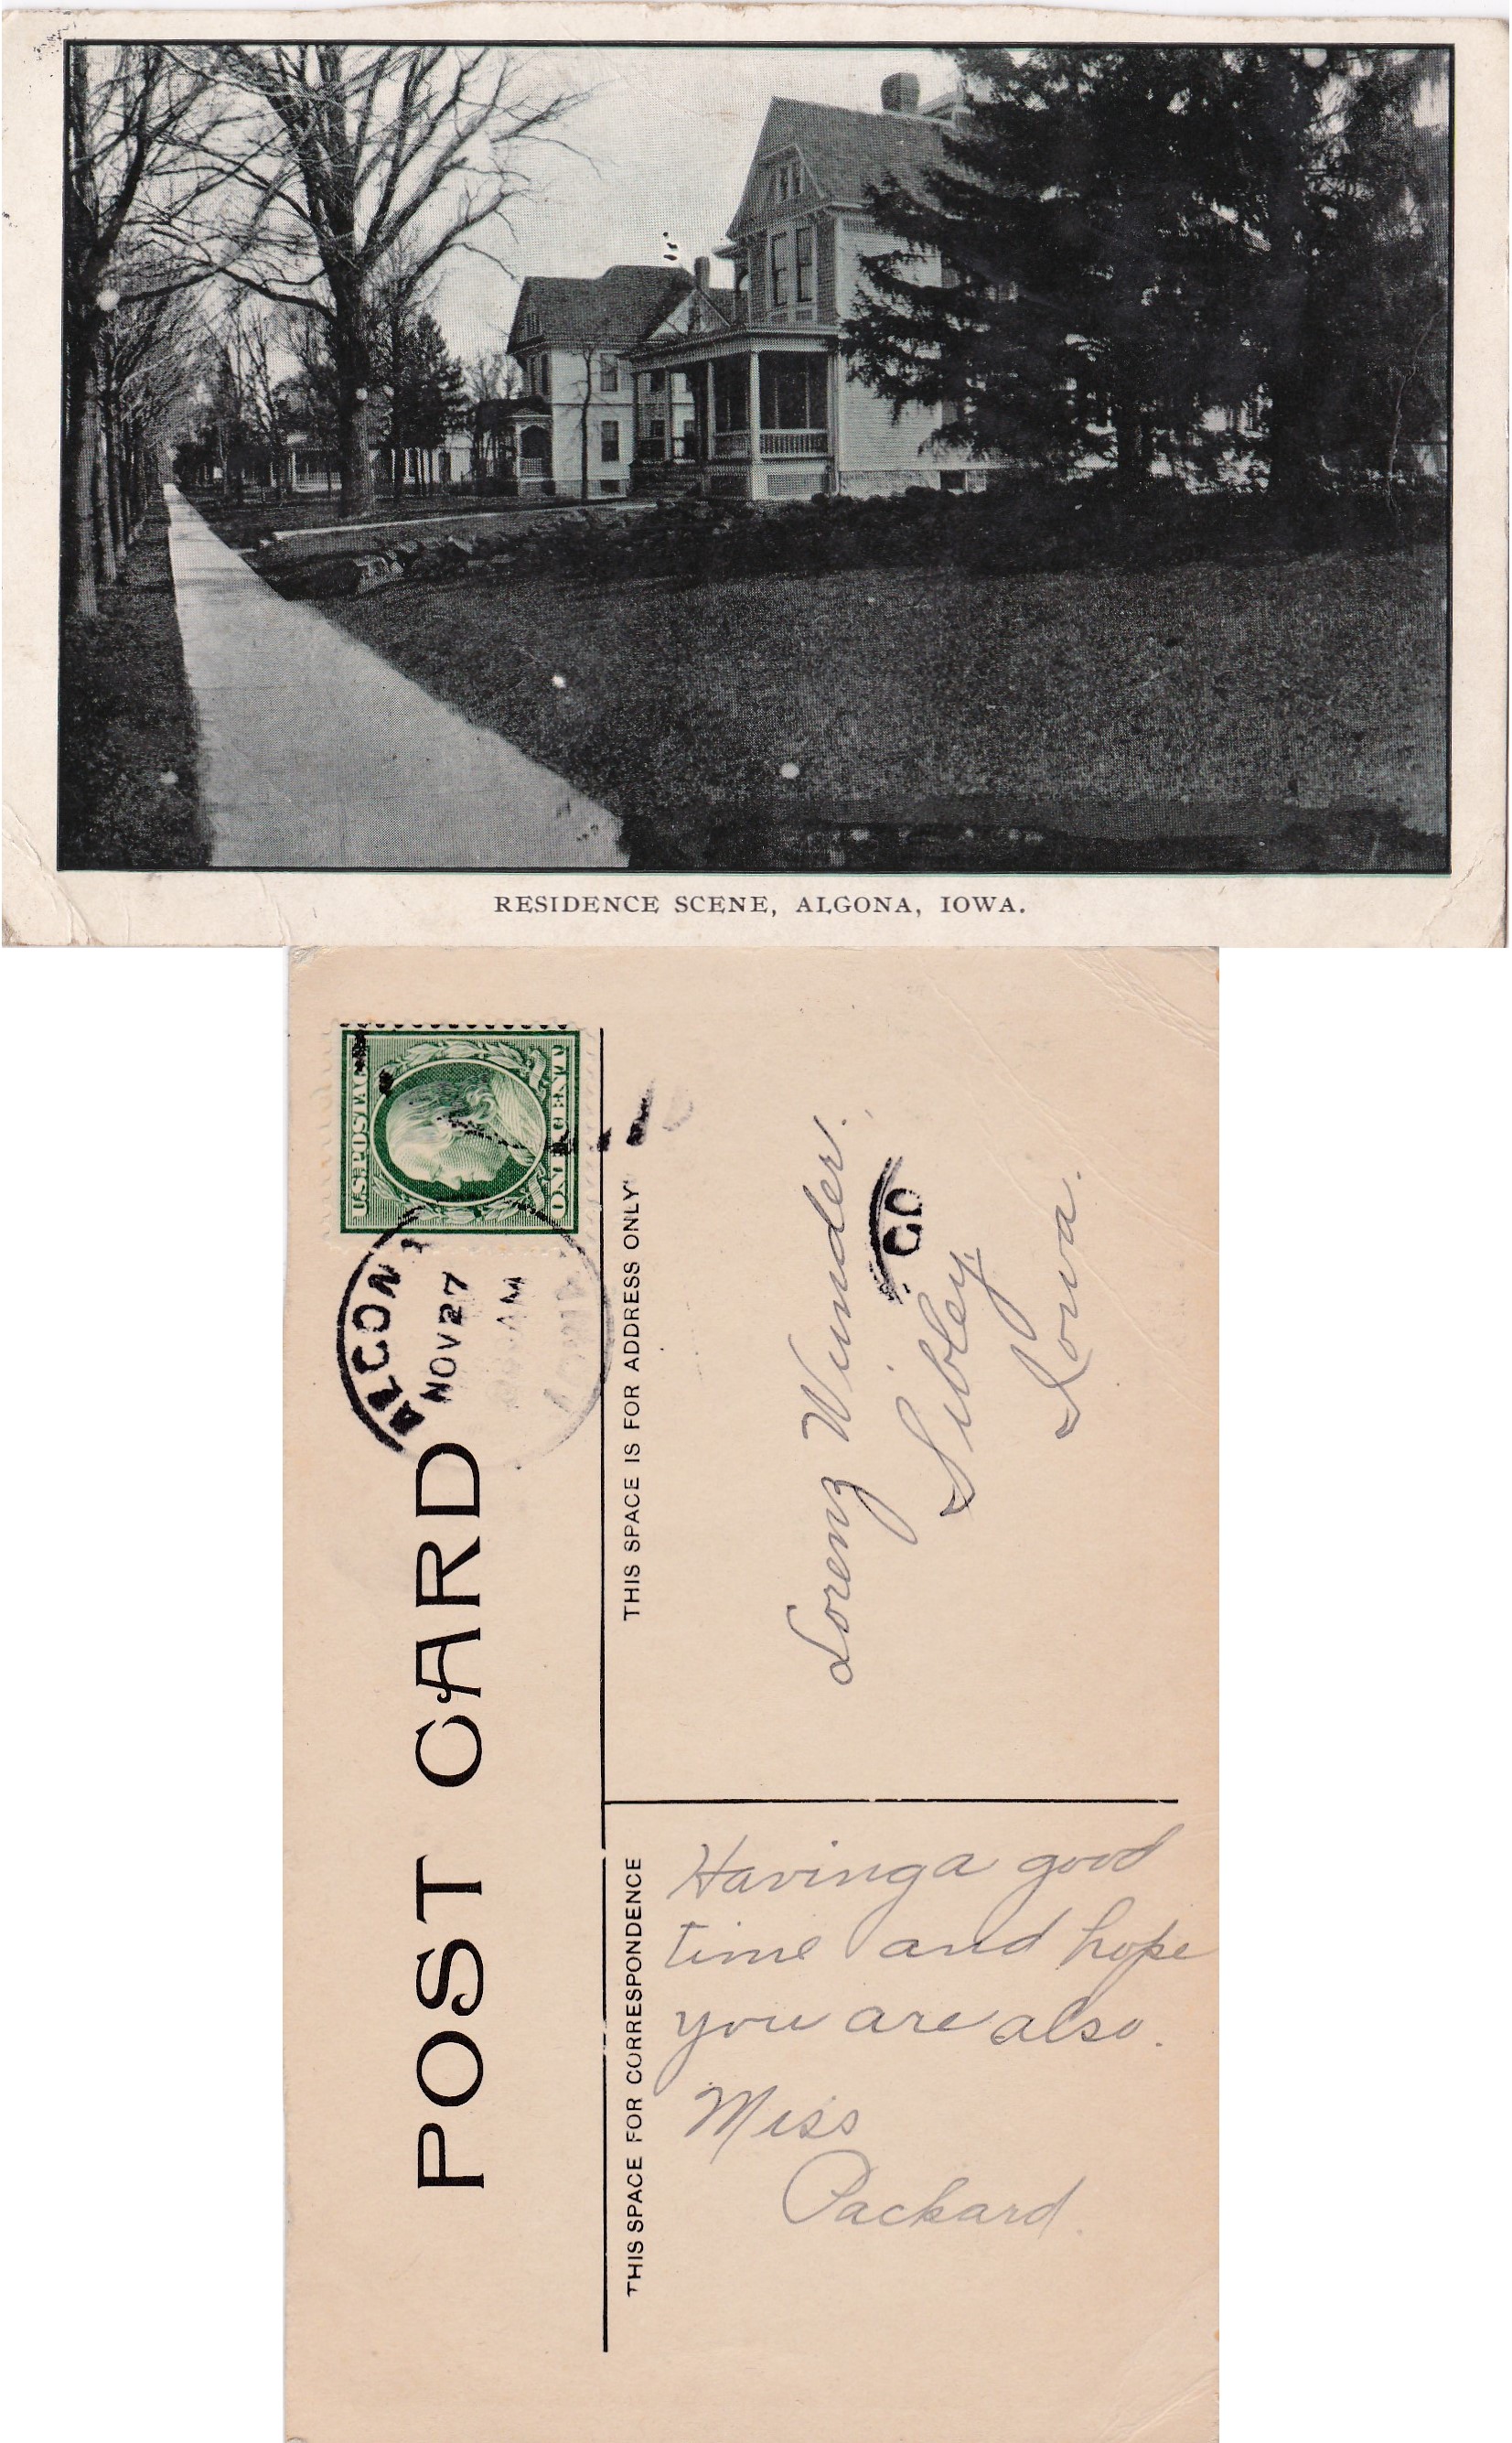 RESIDENCE SCENE, ALGONA, IOWA.
U.S. POSTAGE
ONE CENT
ALGONA
NOV 27
AM
IOWA
POST CARD
THIS SPACE IS FOR ADDRESS ONLY
Lorenz Wunder.
Sibley
Iowa.
THIS SPACE FOR CORRESPONDENCE
Having a good
time and hope
you are also.
Miss
Packard.